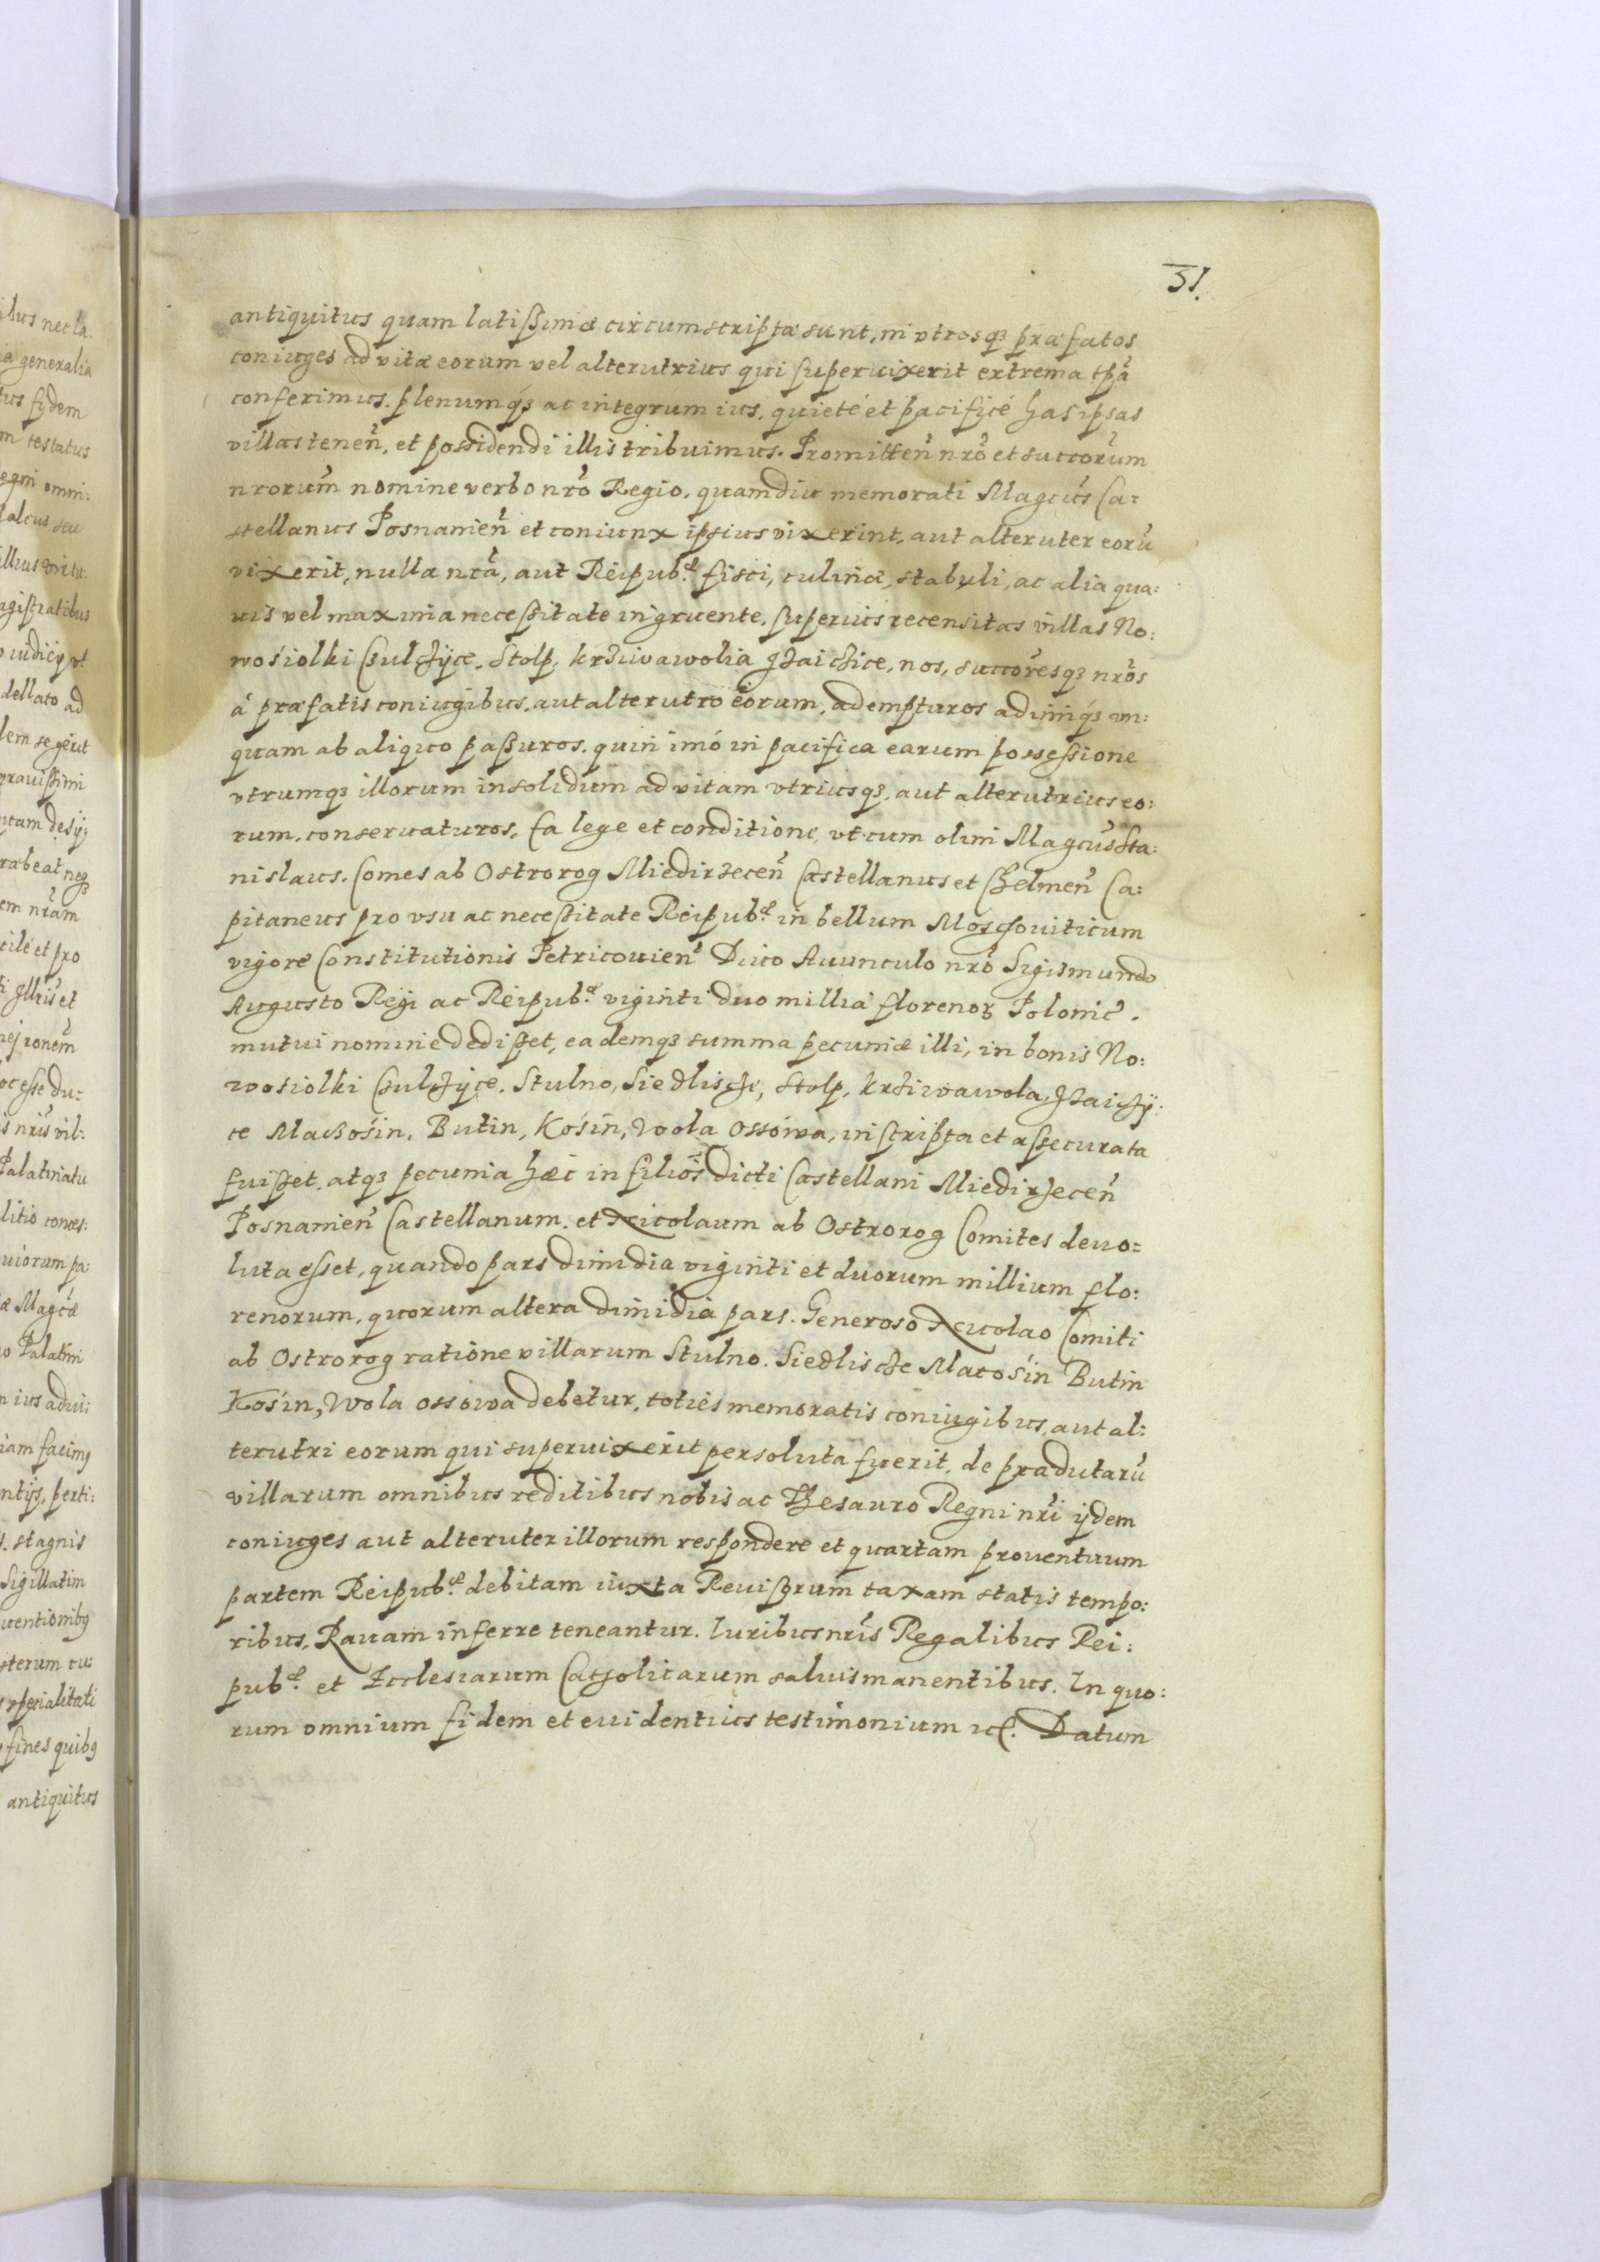 31.
antiquitus quam latissimæ circumscriptæ sunt, in vtrosq3 præfatos
coniuges ad vitæ eorum vel alterutrius qui superuixerit extrema tpã
conferimus. plenumq́3 ac integrum ius, quieté et pacificé has ipsas
villas tenen̄, et possidendi illis tribuimus. Promitten̄ nr̄o et succorūm
nrorūm nomine verbo nr̄o Regio, quamdiu memorati Magcūs Ca:
stellanus Posnanien̄ et coniunx ipsius vixerint, aut alteruter eorū
vixerit, nulla nrā, aut Reipub.æ fisci, culinæ, stabuli, ac alia qua:
uis vel maxima necessitate ingruente, superius recensitas villas No:
wośiolki Culczyce, Stolp, krziwawolia Hłaicżice, nos, succōresq3 nr̄os
á præfatis coniugibus, aut alterutro eorum, adempturos adimiq́3 un:
quam ab aliquo passuros. quin imó in pacifica earum possessione
vtrumq3 illorum insolidum ad vitam vtriusq3, aut alterutrius eo:
rum, conseruaturos. Ea lege et conditione, vt cum olim Magcūs Sta:
nislaus. Comes ab Ostrorog Miedirzecen̄ Castellanus et Chelmen̄ Ca:
pitaneus pro vsu ac necessitate Reipub.æ in bellum Moschouiticum
vigore Constitutionis Petricouien̄ Diuo Auunculo nr̄o Sigismundo
Augusto Regi ac Reipub.æ viginti duo millia florenoꝝ Polonic̄.
mutui nomine dedisset, eademq3 summa pecuniæ illi, in bonis No:
wosiolki Culczyce. Stulno, Siedliscże, Stolp, krziwawola, Hłaiczÿ:
ce Macośin, Butin, Kośin, Wola Ossówa, inscripta et assecurata
fuisset, atq3 pecunia hæc in filios dicti Castellani Miedirzecen̄
Posnanien̄ Castellanum. et Nicolaum ab Ostrorog Comites deuo=
luta esset, quando pars dimidia viginti et duorum millium flo:
renorum, quorum altera dimidia pars. Generoso Nicolao Comiti
ab Ostrorog ratione villarum Stulno. Siedliscże Macośin Butin
Kośin, Wola ossowa debetur, toties memoratis coniugibus, aut al:
terutri eorum qui superuixerit persoluta fuerit, de prædictarū
villarum omnibus reditibus nobis ac Thesauro Regni nrī ijdem
coniuges aut alteruter illorum respondere et quartam prouentuum
partem Reipub.æ debitam iuxta Reuisorum taxam statis tempo:
ribus, Rauam inferre teneantur. Iuribus nrīs Regalibus Rei:
pub.æ et Ecclesiarum Catholicarum saluis manentibus. In quo:
rum omnium fidem et euidentius testimonium etc. Datum